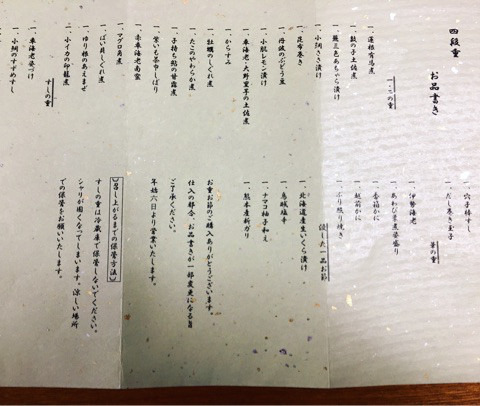 四段重
お品書き
一、二の重
一、蓮根有馬煮
一、数の子土佐煮
一、蕪三色あちゃら漬け
一、小鯛ささ漬け
一、昆布巻き
一、丹波のぶどう豆
一、小肌レモン漬け
一、車海老・大野里芋の土佐煮
一、からすみ
一、牡蠣のしぐれ煮
一、たこのやわらか煮
一、子持ち鮎の甘露煮
一、紫いも茶巾しぼり
一、車海老南蛮
一、マグロ角煮
一、ばい貝しぐれ煮
一、ゆり根のあえまぜ
一、小イカの印籠煮
すしの重
一、車海老姿づけ
一、小鯛のすずめすし
一、穴子棒すし
一、だし巻き玉子
の重
一、伊勢海老
一、あわび柔煮姿盛り
一、香箱かに
一、越前かに
一、ぶり照り焼き
一品お節
一、北海道産生いくら漬け
一、烏賊塩辛
一、ナマコ柚子和え
一、熊本産新ガリ
お重お節のご購入ありがとうございます。
仕入の都合、お品書きが一部変更になる旨
ご了承ください。
年始六日より営業いたします。
【召し上がるまでの保管方法】
すしの重は冷蔵庫で保管しないでください。
シャリが固くなってしまいます。涼しい場所
での保管をお願いいたします。